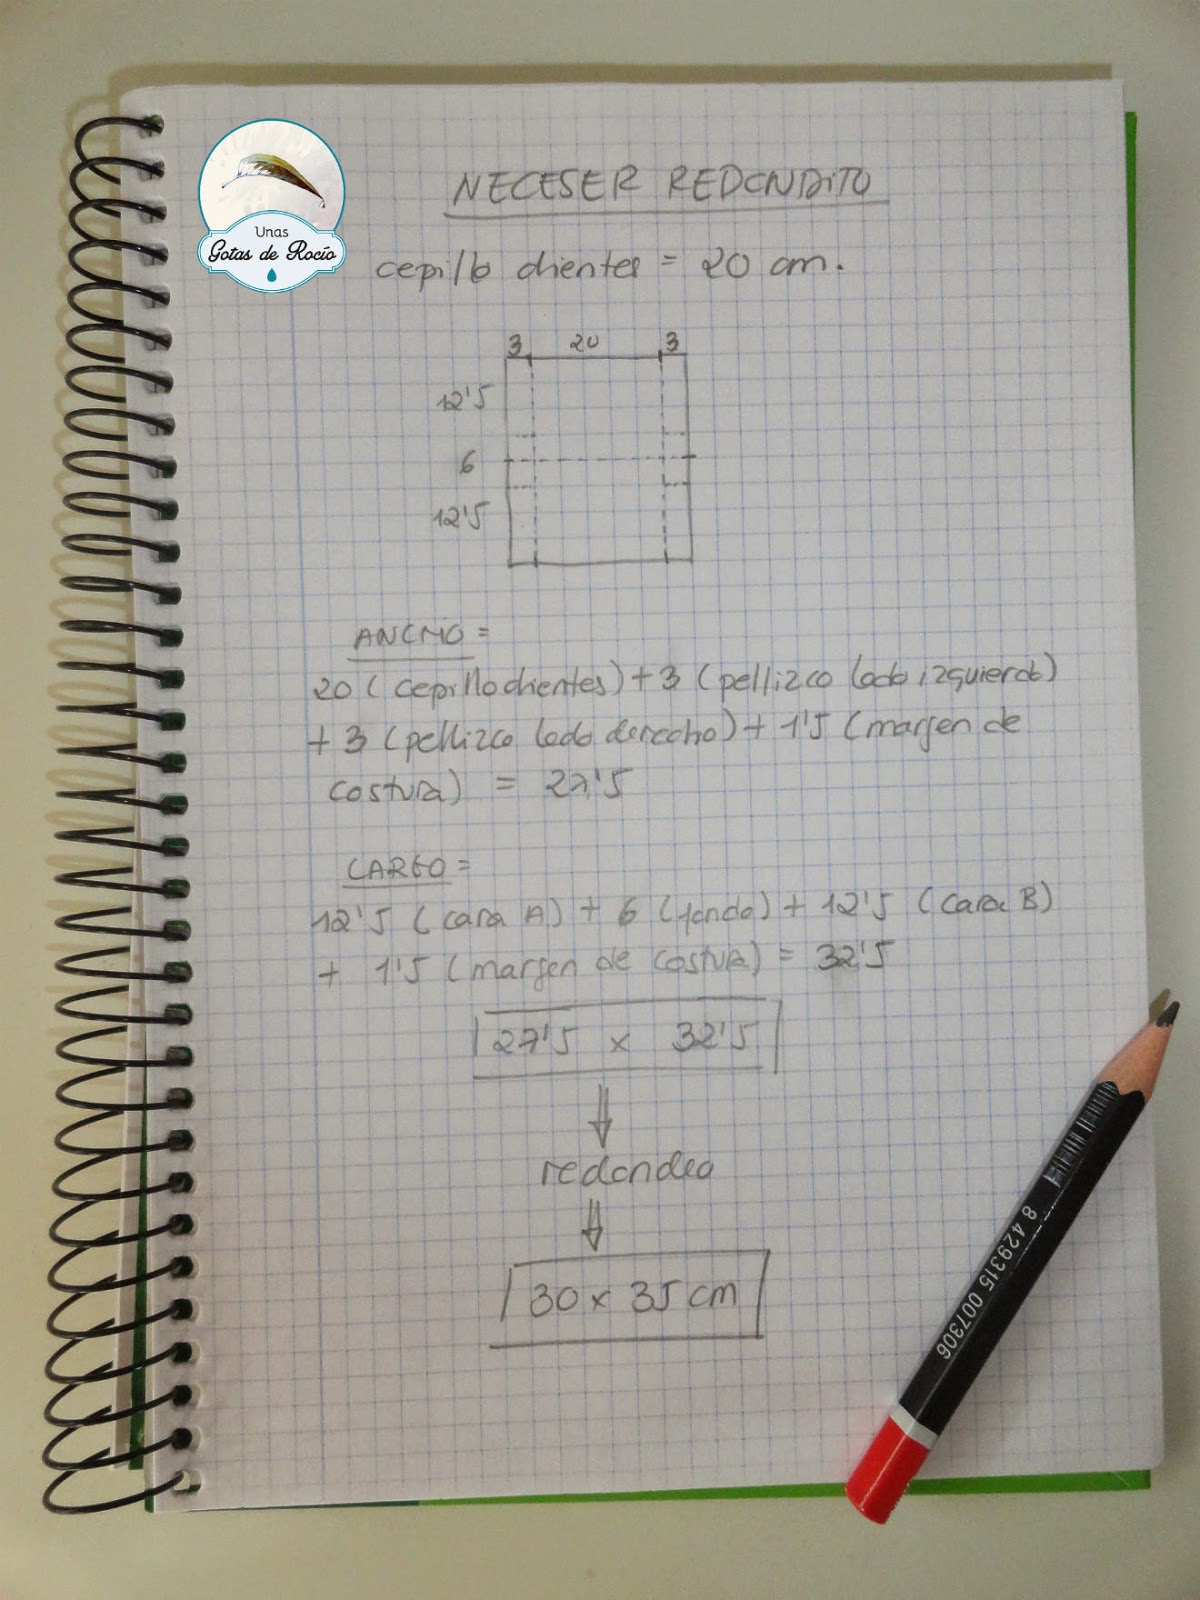 Unas
Gotas de Rocío
NECESER REDONDITO
cepillo dientes = 20 cm.
3 20 3
12'5
6
12'5
ANCHO =
20 (cepillo dientes) + 3 (pellizco lado izquierdo)
+ 3 (pellizco lado derecho) + 1'5 (margen de
costura) = 27'5
LARGO =
12'5 (cara A) + 6 (fondo) + 12'5 (cara B)
+ 1'5 (margen de costura) = 32'5
27'5 x 32'5
redondeo
30 x 35 cm
8 429315 007306